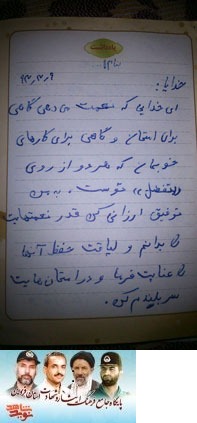 یادداشت
بنام ا...
۹۳٫۳٫۹
خدایا:
ای خدایی که نعمت می دهی گاهی
برای امتحان و گاهی برای کارهای
خوبمان که هر دو از روی
تفضل توست، به من
توفیق ارزانی کن قدر نعمتهایت
را بدانم و لیاقت حفظ آنها
را عنایت فرما و در امتحان هایت
سربلندم کن.
پایگاه جامع فرهنگ ایثار و شهادت استان قزوین
نوید شاهد